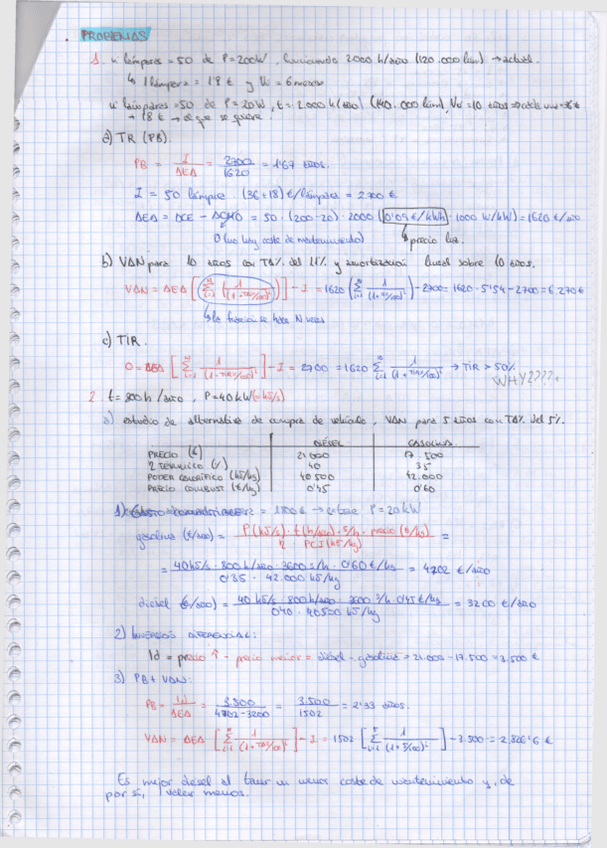 PROBLEMAS
1. nº lámparas = 50 de P = 200W, funcionando 2000 h/año (120.000 lum) → actual.
↳ 1 lámpara = 18 € y Vu = 6 meses
nº lámparas = 50 de P = 20W, t = 2.000 h/año, (140.000 lum), Vu = 10 años
+ 18 € → el que se quiere
a) TR (PB).
PB = I / ΔEA = 2700 / 1620 = 1'67 años.
I = 50 lámps · (36+18) €/lámpara = 2700 €
ΔEA = DCE - ΔCMO = 50 · (200-20) · 2000 (0'09 €/kWh) · 1000 W/kW) = 1620 €/año
0 (no hay coste de mantenimiento) ↳ precio luz.
b) VAN para 10 años con TA% del 11% y amortización lineal sobre 10 años.
VAN = ΔEA [ Σ i=1 ( 1 / (1+TA/100)^i ) ] - I = 1620 ( Σ i=1 1 / (1+11/100)^i ) - 2700 = 1620 · 5'54 - 2700 = 6.270 €
↳ la función se hace N veces
c) TIR.
0 = ΔEA [ Σ i=1 1 / (1+TIR/100)^i ] - I = 2700 = 1620 Σ i=1 1 / (1+TIR/100)^i → TIR > 50%
WHY????
2. t = 800 h/año, P = 40 kW (= kJ/s)
a) estudio de alternativa de compra de vehículo, VAN para 5 años con TA% del 5%.
DIÉSEL GASOLINA
PRECIO (€) 21 000 17.500
η TÉRMICO (%) 40 35
PODER CALORÍFICO (kJ/kg) 40 500 42.000
PRECIO COMBUST (€/kg) 0'45 0'60
1)
gasolina (€/año) = P (kJ/s) · t (h/año) · s/h · precio (€/kg) / η · PCI (kJ/kg) =
= 40 kJ/s · 800 h/año · 3600 s/h · 0'60 €/kg / 0'35 · 42.000 kJ/kg = 4702 €/año
diésel (€/año) = 40 kJ/s · 800 h/año · 3600 s/h · 0'45 €/kg / 0'40 · 40500 kJ/kg = 3200 €/año
2) INVERSIÓN DIFERENCIAL:
Id = precio ↑ - precio menor = diésel - gasolina = 21.000 - 17.500 = 3.500 €
3) PB + VAN:
PB = Id / ΔEA = 3.500 / 4702-3200 = 3.500 / 1502 = 2'33 años.
VAN = ΔEA [ Σ i=1 1 / (1+TA/100)^i ] - I = 1502 [ Σ i=1 1 / (1+5/100)^i ] - 3.500 = 2.826'6 €
Es mejor diésel al tener un menor coste de mantenimiento y, de
por sí, valer menos.